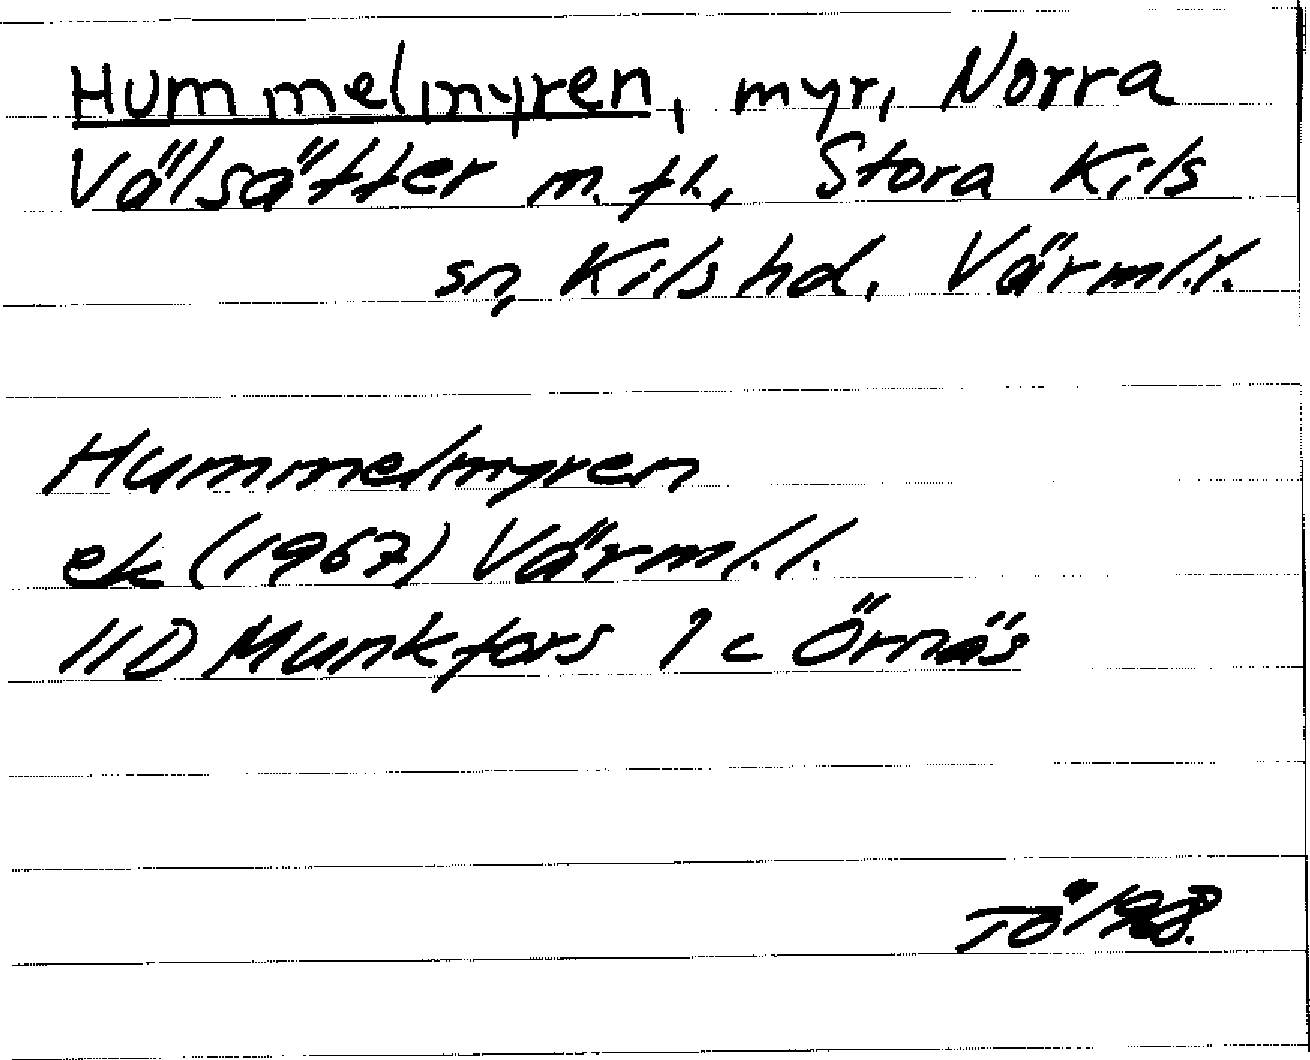 Hummelmyren, myr, Norra
Välsätter m. fl., Stora Kils
sn, Kils hd, Värml.l.
Hummelmyren
ek (1967) Värml.l.
11D Munkfors 1c Örnäs
TÖ 1988.